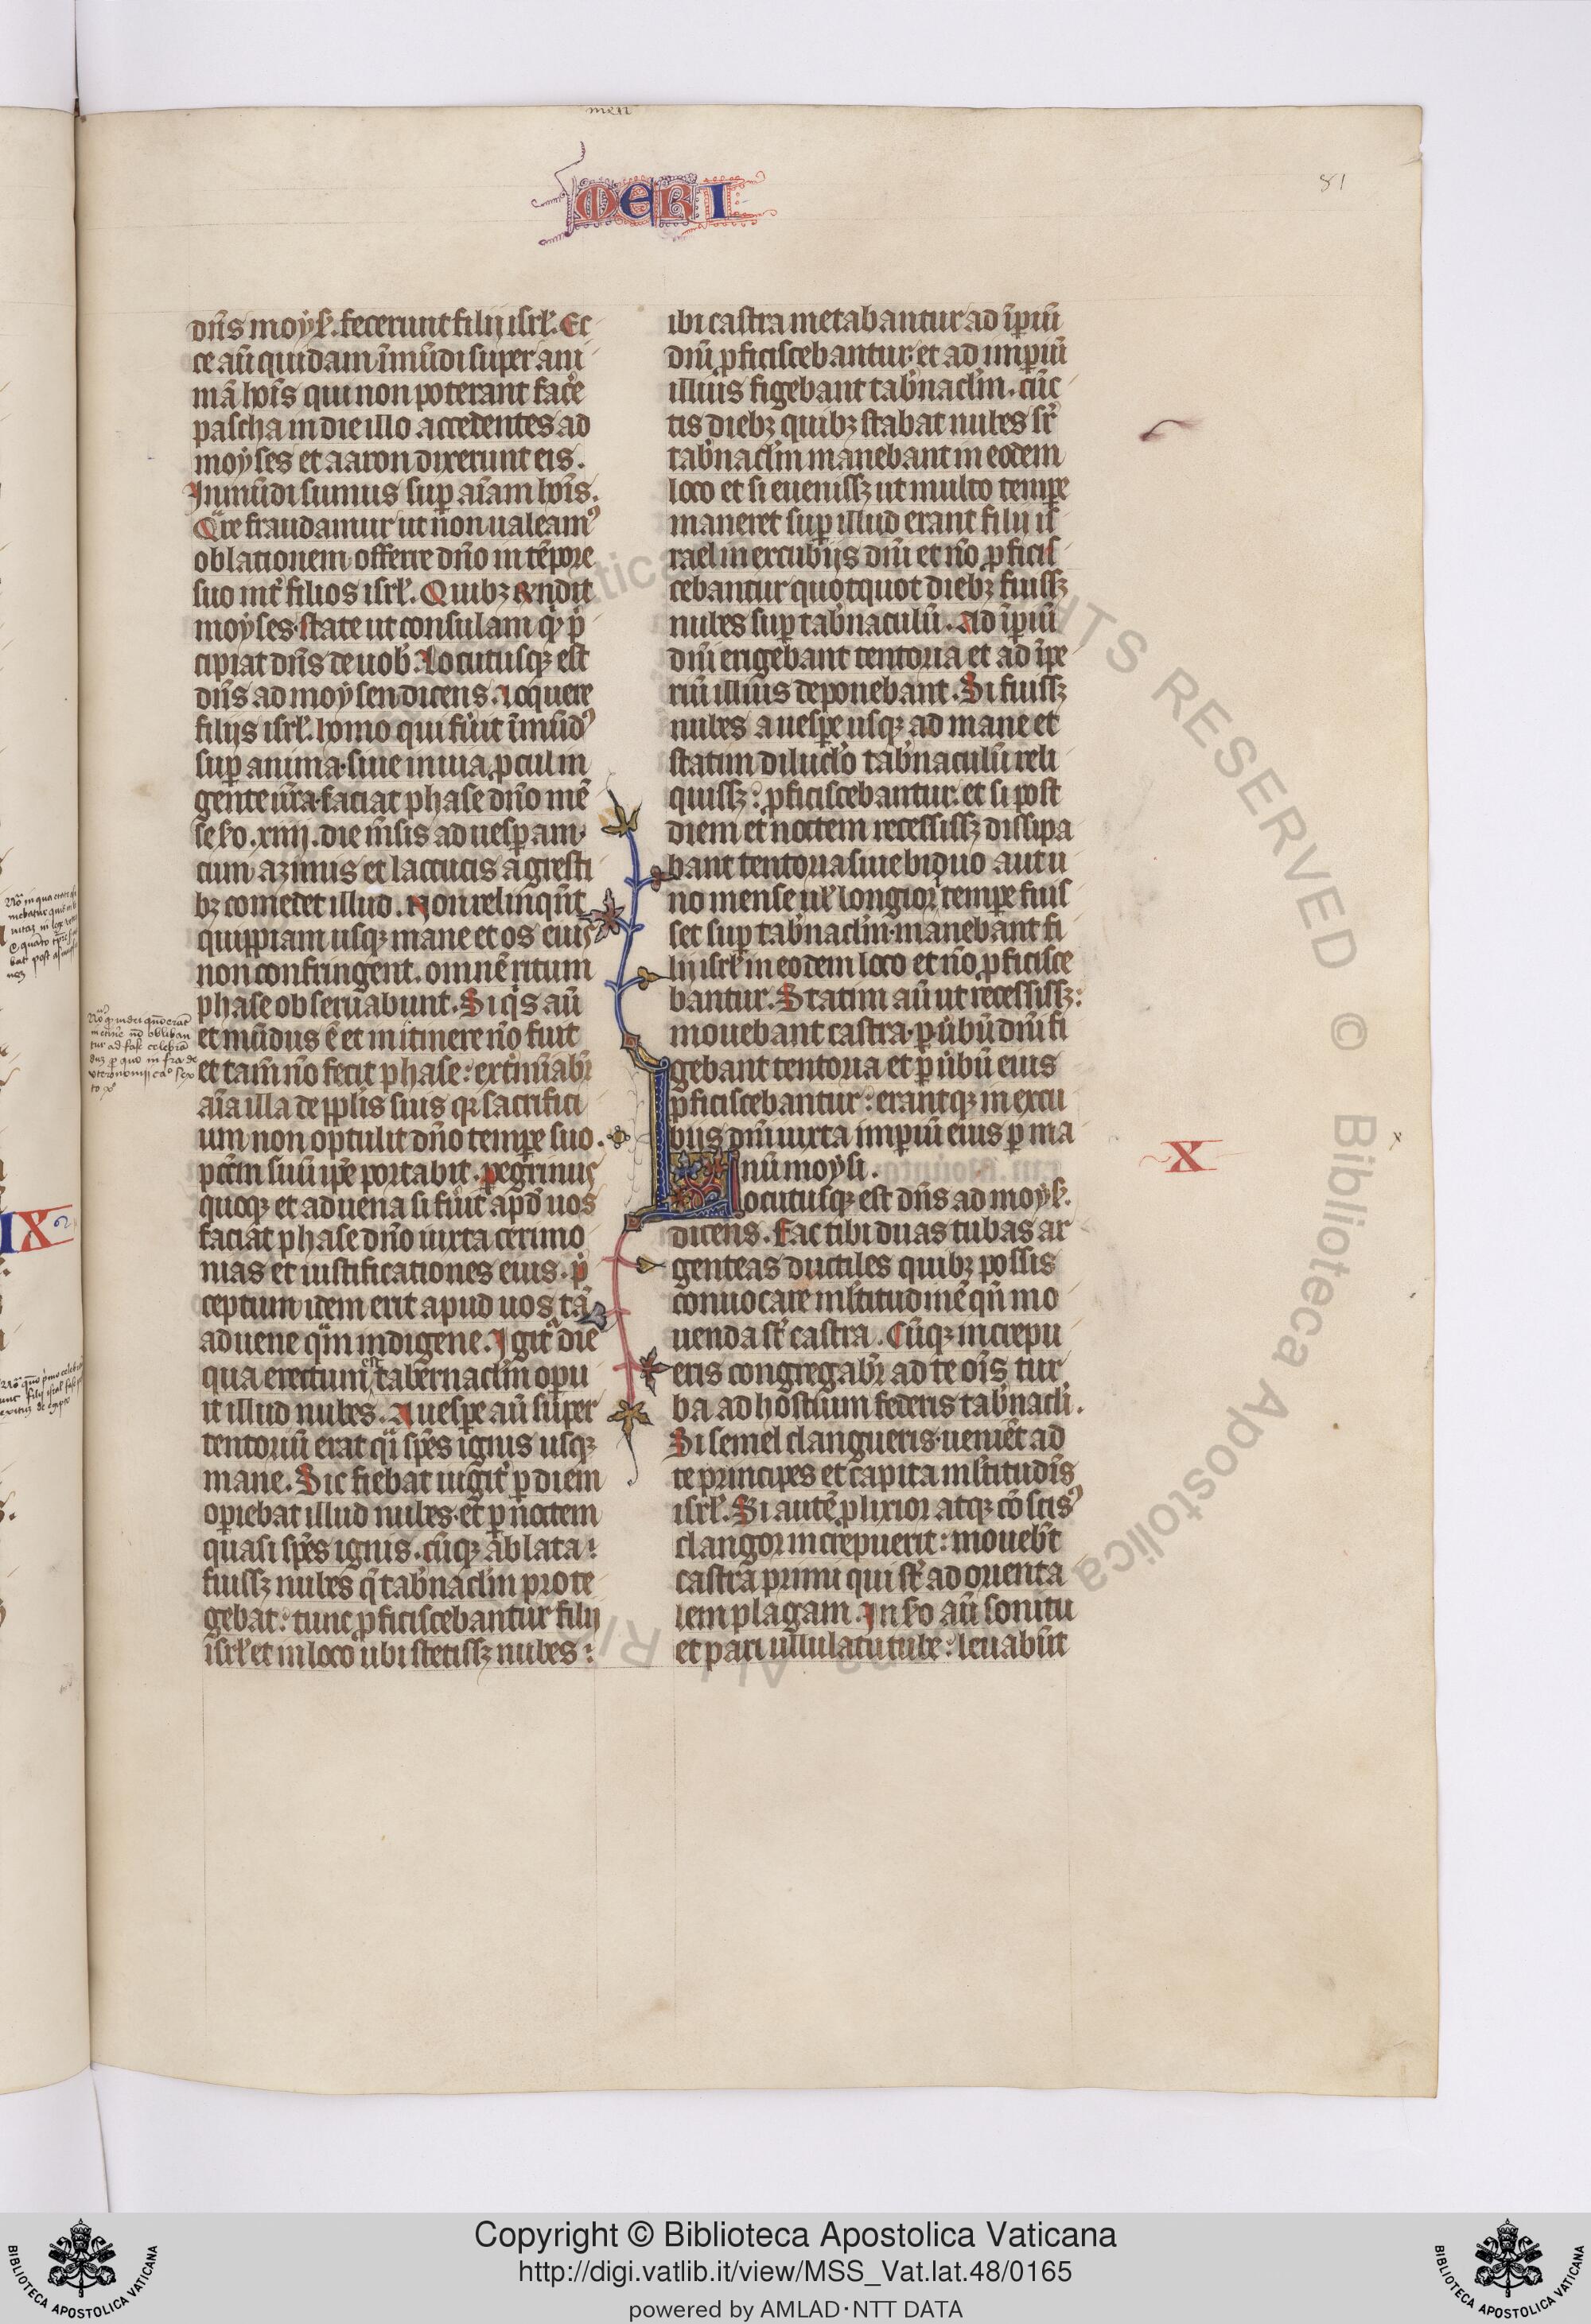 meri
MERI
81
dn̄s moyſ. fecerunt filij iſrł. Ec
ce aū quidam īmūdi super ani
mā hoīs qui non poterant fac̓e
pascha in die illo accedentes ad
moyses et aaron dixerunt eis.
Inmūdi sumus sup̱ aīam hoīs.
Qͣre fraudamur ut non ualeamꝰ
oblationem offerre dn̄o in tēpore
suo int̓ filios iſrł. Quibꝫ r̄ndit
moyses. state ut consulam qͥd p̄
cipiat dn̄s de uob̓. Locutusqꝫ est
dn̄s ad moysen dicens. Loquere
filijs iſrł. homo qui fu̓it īmūdꝰ
sup̱ anima. siue in uia ꝓcul in
gente ur̄a. faciat phase dn̄o mē
se ẜo. xiiij. die m̄sis ad uesp̱am.
cum azimis et lactucis agresti
bꝫ comedet illud. Non relinqn̄t
quippiam usqꝫ mane et os eius
non confringent. omnē ritum
phase obseruabunt. Si qͥs aū
et mūdus ē et in itinere nō fuit
et tam̄ nō fecit phase: ext̓minabr̄
aīa illa de ppl̓is suis qꝛ sacrifici
um non optulit dn̄o tempe̱ suo.
pctm̄ suū ip̄e portabit. peregrinus
quoqꝫ et aduena si fu̓it apd̓ uos
faciat phase dn̄o iuxta cerimo
nias et iustificationes eius. p̄
ceptum idem erit apud uos tā
aduene qͣm indigene. Igit̓ die
qua erectum est tabernaclm̄ op̱u
it illud nubes. A uesp̱e aū super
tentorium erat qͣi spēs ignis usqꝫ
mane. Sic fiebat iugit̓ p̱ diem
op̱iebat illud nubes. et p̱ noctem
quasi spēs ignis. cūqꝫ ablata
fuissꝫ nubes q̄ tab̓naclm̄ prote
gebat: tunc ꝓficiscebantur filij
iſrł et in loco ubi stetissꝫ nubes:
ibi castra metabantur ad īp̱iū
dn̄i ꝓficiscebantur: et ad imp̱iū
illius figebant tab̓naclm̄. cūc
tis diebꝫ quibꝫ stabat nubes sr̄
tab̓naclm̄ manebant in eodem
loco et si euenissꝫ ut multo temp̱e
maneret sup̱ illud erant filij iſ
rael in excubijs dn̄i et nō ꝓficis
cebantur quotquot diebꝫ fuissꝫ
nubes sup̱ tab̓naculū. Ad īp̱iū
dn̄i erigebant tentoria et ad īpe
riū illius deponebant. Si fuissꝫ
nubes a uesp̱e usqꝫ ad mane et
statim diluc̓lo tab̓naculū reli
quissꝫ: ꝓficiscebantur. et si post
diem et noctem recessissꝫ dissipa
bant tentoria siue biduo aut u
no mense uł longior̓ temp̱e fuis
set sup̱ tab̓naclm̄. manebant fi
lij iſrł in eodem loco et nō ꝓficisce
bantur. Statim aū ut recessissꝫ:
mouebant castra. p̱ u̓bū dn̄i fi
gebant tentoria et p̱ u̓bū eius
ꝓficiscebantur: erantqꝫ in excu
bijs dn̄i iuxta imp̱iū eius p̱ ma
nū moysi.
X
Locutusqꝫ est dn̄s ad moyſ.
dicens. Fac tibi duas tubas ar
genteas ductiles quibꝫ possis
conuocare ml̓titudinē qn̄ mo
uenda st̄ castra. Cūqꝫ increpu
eris congregabr̄ ad te oīs tur
ba ad hostium federis tab̓nacli̓.
Si semel clangueris. ueniēt ad
te principes et capita ml̓titudīs
iſrł. Si autē ꝓlixior atqꝫ cōscisꝰ
clangor increpuerit: mouebt̄
castra primi qui st̄ ad orienta
lem plagam. In ẜo aū sonitu
et pari ullulatu tube: leuabūt
IX
Copyright © Biblioteca Apostolica Vaticana
http://digi.vatlib.it/view/MSS_Vat.lat.48/0165
powered by AMLAD·NTT DATA
BIBLIOTECA APOSTOLICA VATICANA
BIBLIOTECA APOSTOLICA VATICANA